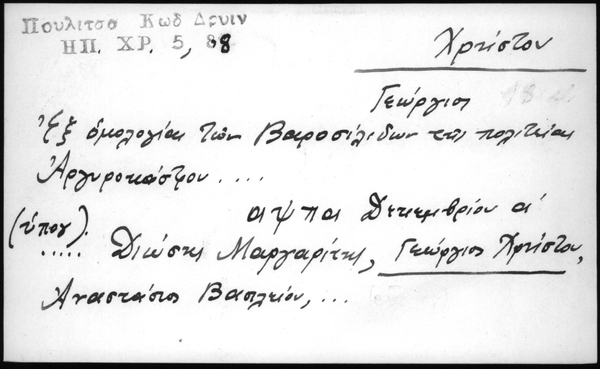 Πουλιτσα Κωδ Δρυιν
ΗΠ. ΧΡ. 5, 88
Χρήστου
Γεώργιος
Ἐξ ὁμολογίας τῶν Βαροσιλιδων τῆς πολιτείας
Ἀργυροκάστρου ....
αψπα Δεκεμβρίου α'
(ὑπογ).
..... Διώστης Μαργαρίτης, Γεώργιος Χρήστου,
Ἀναστάσιος Βασιλείου, ...